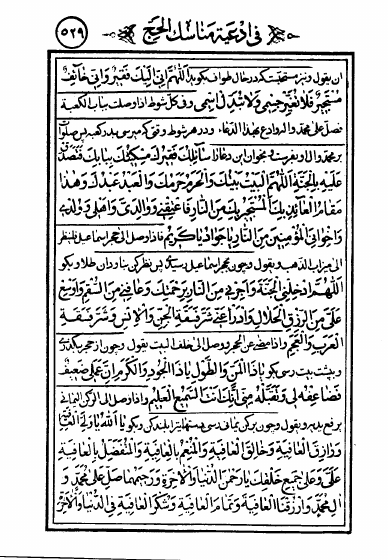 فی ادعیة مناسك الحج
٥٢٩
ان يقول ونيز مستحبست که در حال طواف بگوید اللهم انی الیك فقیر وانی خائف
مستجیر فلا تغیر جسمی ولا تبدل اسمی وفی کل شوط اذا وصلت بباب الکعبة
فصل علی محمد واله وادع بهذا الدعاء ودر هر شوط وقتی که میرسی بدر کعبه پس صلوات
بر محمد وال او بفرست وبخوان این دعا را سائلك فقیرك مسکینك ببابك فتصدق
علیه بالجنة اللهم البیت بیتك والحرم حرمك والعبد عبدك وهذا
مقام العائذ بك المستجیر بك من النار فاعتقنی ووالدی واهلی وولدی
واخوانی المؤمنین من النار یا جواد یا کریم فاذا وصل الی حجر اسماعیل فلینظر
الی میزاب الذهب ویقول وچون بحجر اسماعیل رسیدی پس نظر کن بناودان طلا وبگو
اللهم ادخلنی الجنة واجرنی من النار برحمتك وعافنی من السقم واوسع
علی من الرزق الحلال وادرأ عنی شر فسقة الجن والانس وشر فسقة
العرب والعجم فاذا مضی عن الحجر ووصل الی خلف البیت یقول وچون از حجر بگذری
وبپشت بیت رسی بگو یا ذا المن والطول یا ذا الجود والکرم ان عملی ضعیف
فضاعفه لی وتقبله منی انك انت السمیع العلیم واذا وصل الی الرکن الیمانی
یرفع یدیه ویقول وچون برکن یمانی رسی دستها را بلند کن وبگو یا الله یا ولی العافیة
ورازق العافیة وخالق العافیة والمنعم بالعافیة والمتفضل بالعافیة
علی وعلی جمیع خلقك یا رحمن الدنیا والاخرة ورحیمهما صل علی محمد و
ال محمد وارزقنا العافیة وتمام العافیة وشکر العافیة فی الدنیا والاخرة